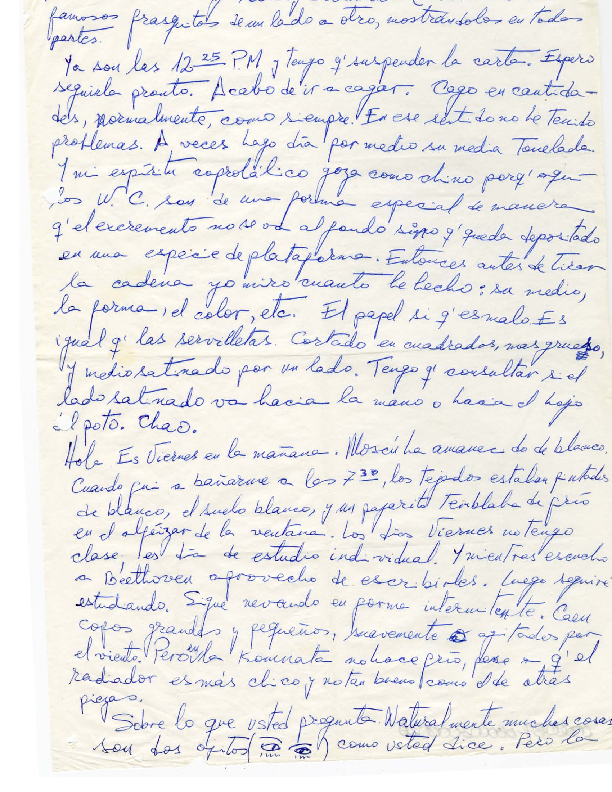 famosos frasquitos de un lado a otro, mostrándolos en todas
partes.
Ya son las 12 25 P.M y tengo q' suspender la carta. Espero
seguirla pronto. Acabo de ir a cagar. Cago en cantida-
des, normalmente, como siempre. En ese sentido no he tenido
problemas. A veces hago día por medio su media Tonelada.
Y mi espíritu coprolálico goza como chino porq' aquí
los W.C. son de una forma especial de manera
q' el excremento no se va al fondo sino q' queda depositado
en una especie de plataforma. Entonces antes de tirar
la cadena yo miro cuanto he hecho: su medio,
la forma, el color, etc. El papel si q' es malo. Es
igual q' las servilletas. Cortado en cuadrados, mas grueso,
y medio satinado por un lado. Tengo q' consultar si el
lado satinado va hacia la mano o hacia el hojo
el poto. Chao.
Hola Es Viernes en la mañana. Moscú ha amanecido de blanco.
Cuando fui a bañarme a las 7 30, los tejados estaban pintados
de blanco, el suelo blanco, y un pajarito temblaba de frío
en el alféizar de la ventana. Los días Viernes no tengo
clase, es día de estudio individual. Y mientras escucho
a Beethoven aprovecho de escribirles. Luego seguiré
estudiando. Sigue nevando en forma intermitente. Caen
copos grandes y pequeños, suavemente agitados por
el viento. Pero en la Komnata no hace frío, pese a q' el
radiador es más chico y no tan bueno como el de otras
piezas.
Sobre lo que usted pregunta. Naturalmente muchas cosas
son dos ojitos ( ) como usted dice. Pero la